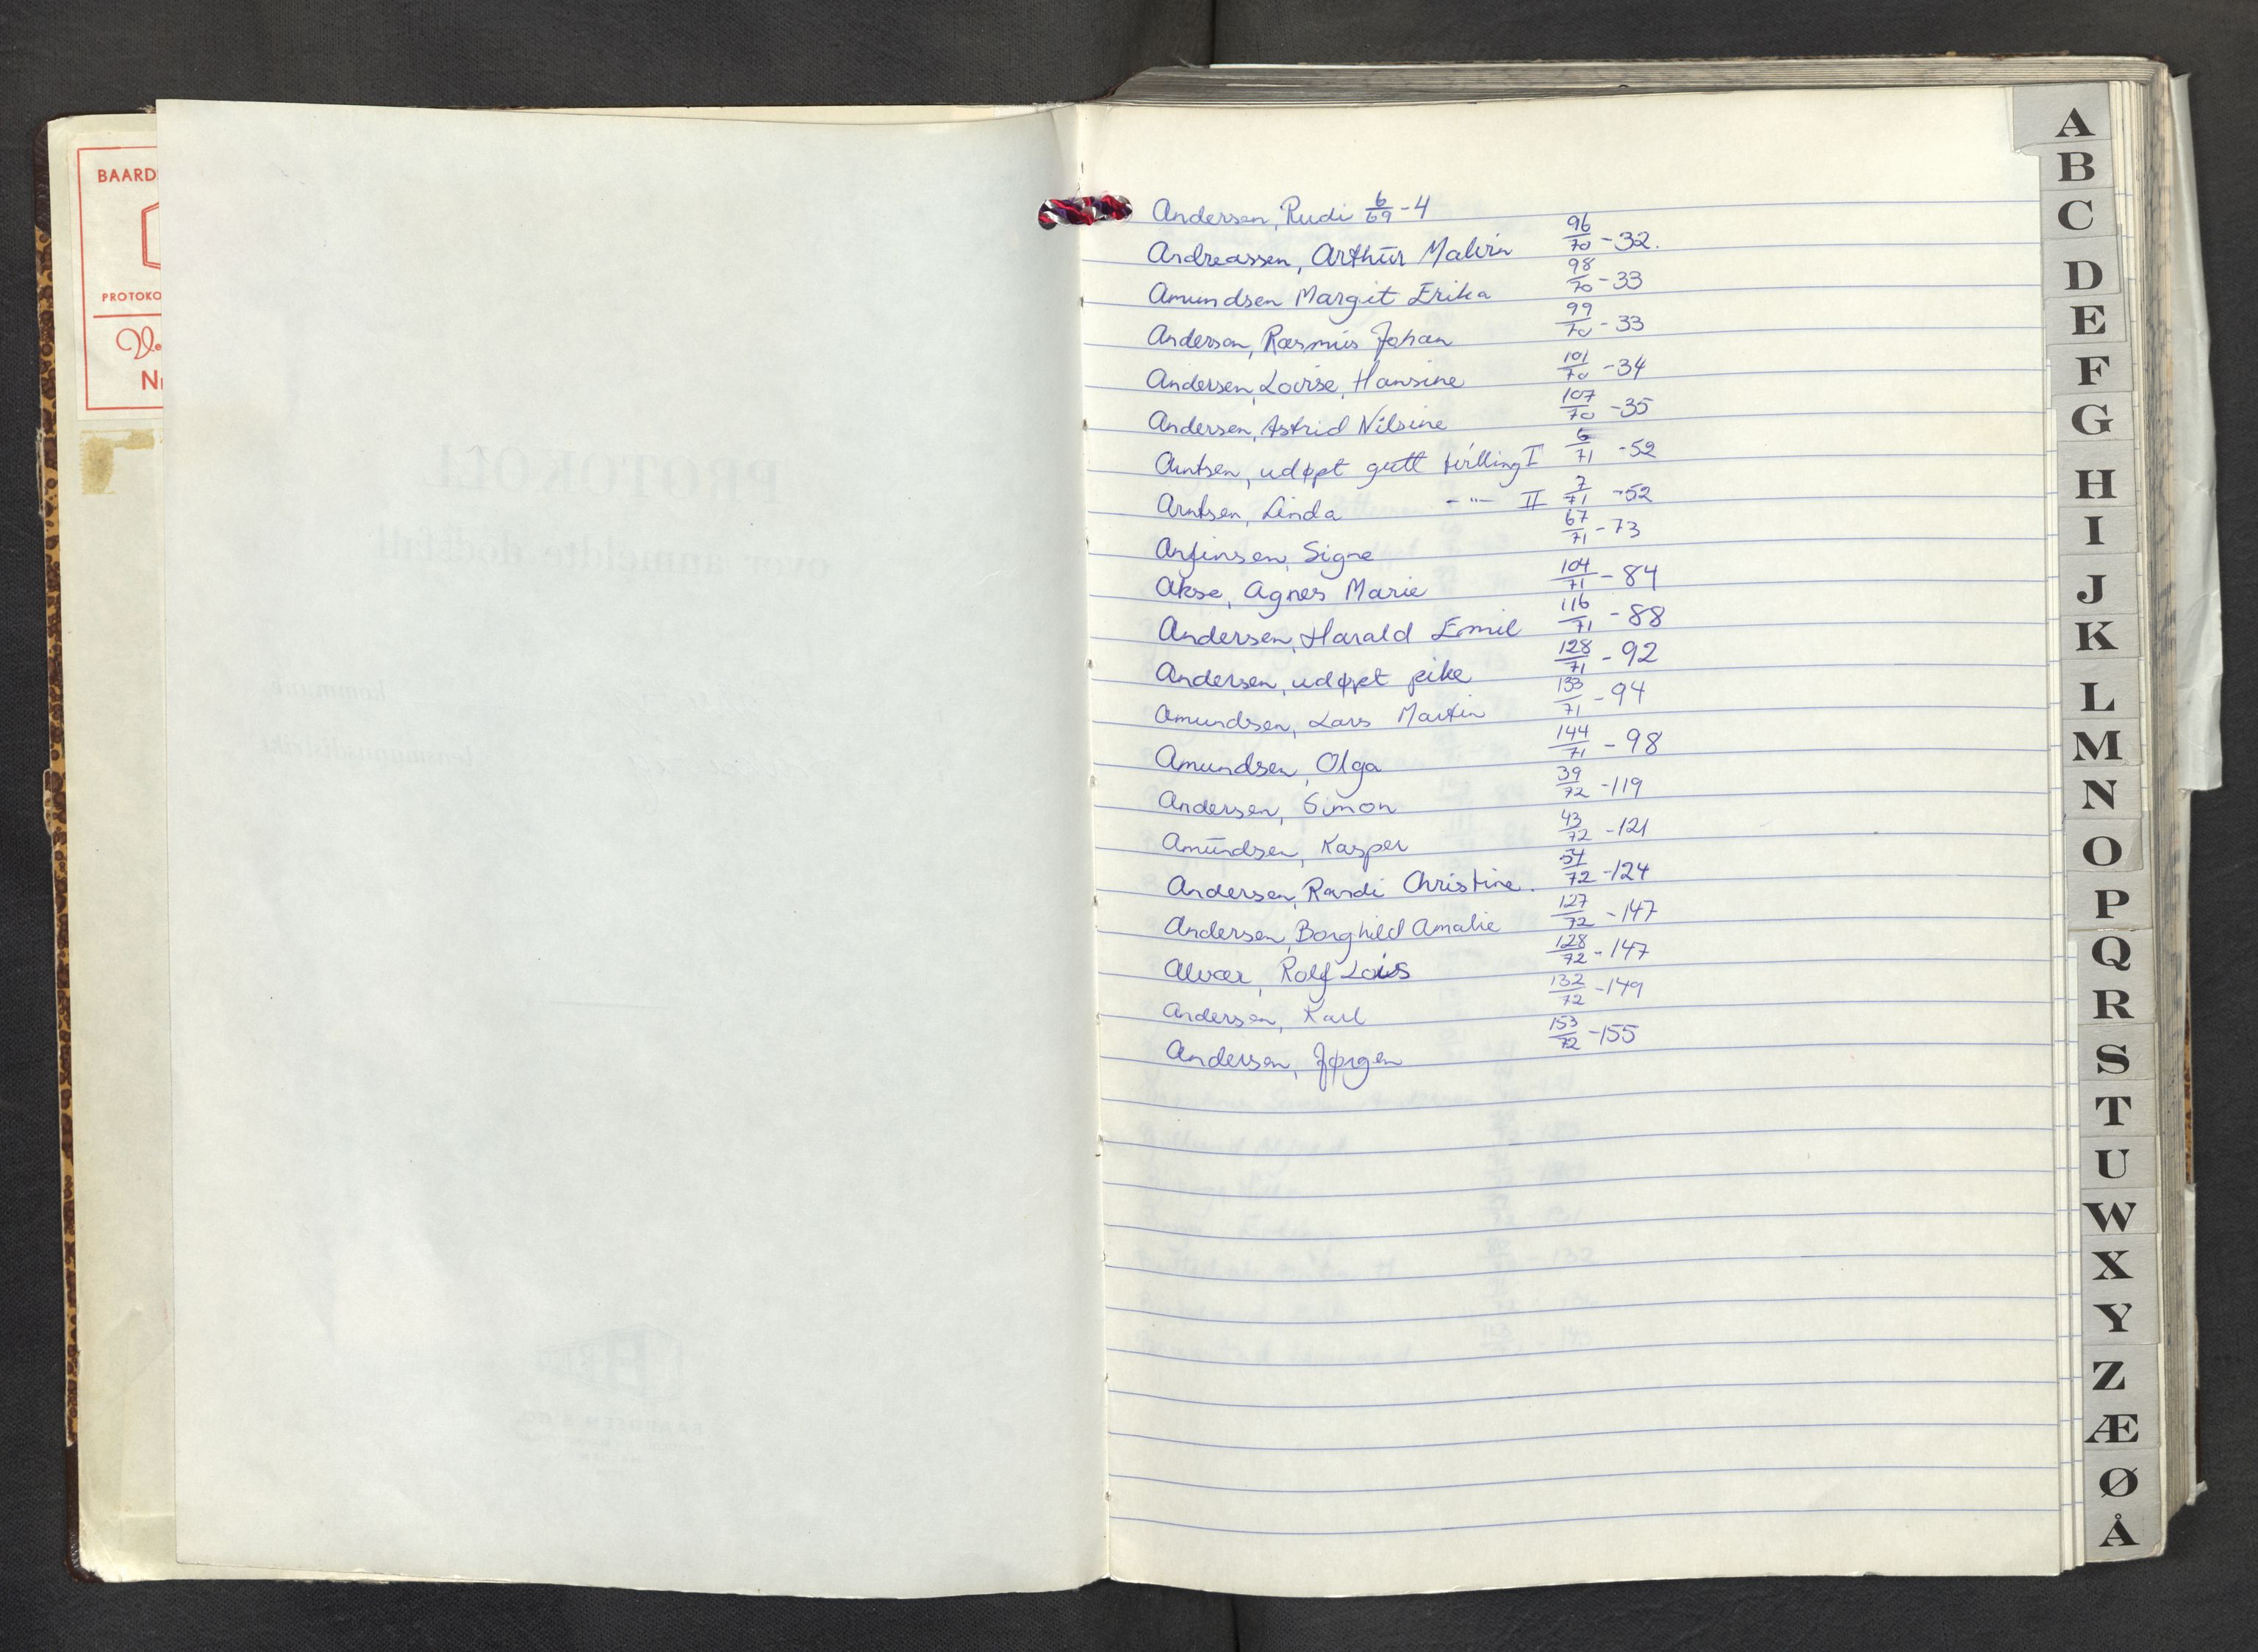 BAARD
PROTOKO
Ve
N
Andersen, Rudi 6/69 - 4
Andreassen, Arthur Malvin 96/70 - 32.
Amundsen Margit Erika 98/70 - 33
Anderson, Rasmus Johan 99/70 - 33
Andersen, Lovise, Hansine 101/70 - 34
Andersen, Astrid Nilsine 107/70 - 35
Arntsen, udøpt gutt tvilling I 6/71 - 52
Arntsen, Linda - " - II 7/71 - 52
Arfinsen, Signe 67/71 - 73
Akse, Agnes Marie 104/71 - 84
Andersen, Harald Emil 116/71 - 88
Andersen, udøpt pike 128/71 - 92
Amundsen, Lars Martin 133/71 - 94
Amundsen, Olga 144/71 - 98
Andersen, Simon 39/72 - 119
Amundsen, Kasper 43/72 - 121
Andersen, Randi Christine. 51/72 - 124
Andersen, Borghild Amalie 127/72 - 147
Alvær, Rolf Lois 128/72 - 147
Andersen, Karl 132/72 - 149
Andersen, Jørgen 153/72 - 155
A
B
C
D
E
F
G
H
I
J
K
L
M
N
O
P
Q
R
S
T
U
W
X
Y
Z
Æ
Ø
Å